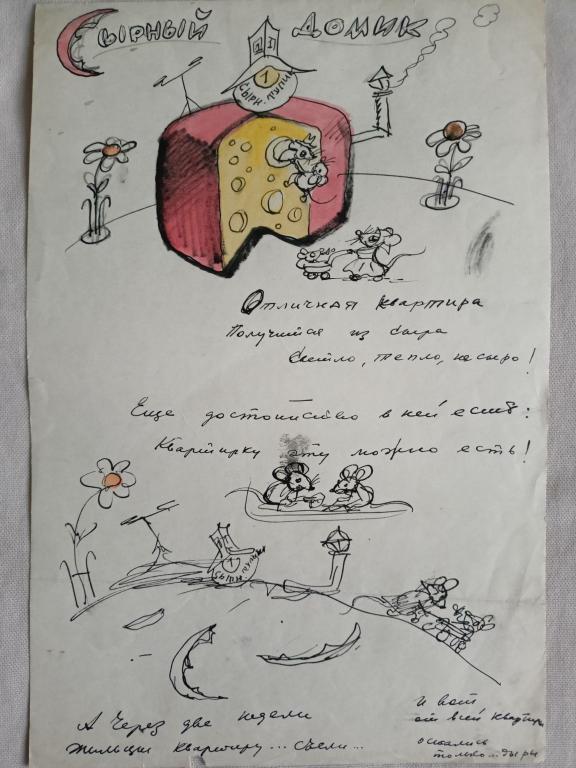 Сырный домик
1
Сырн. тупик
Отличная квартира
Получится из сыра
Светло, тепло, не сыро!
Еще достоинство в ней есть:
Квартирку эту можно есть!
1
Сырн. тупик
А через две недели
Жильцы квартиру... съели...
И вот
от всей квартиры
остались
только... дыры